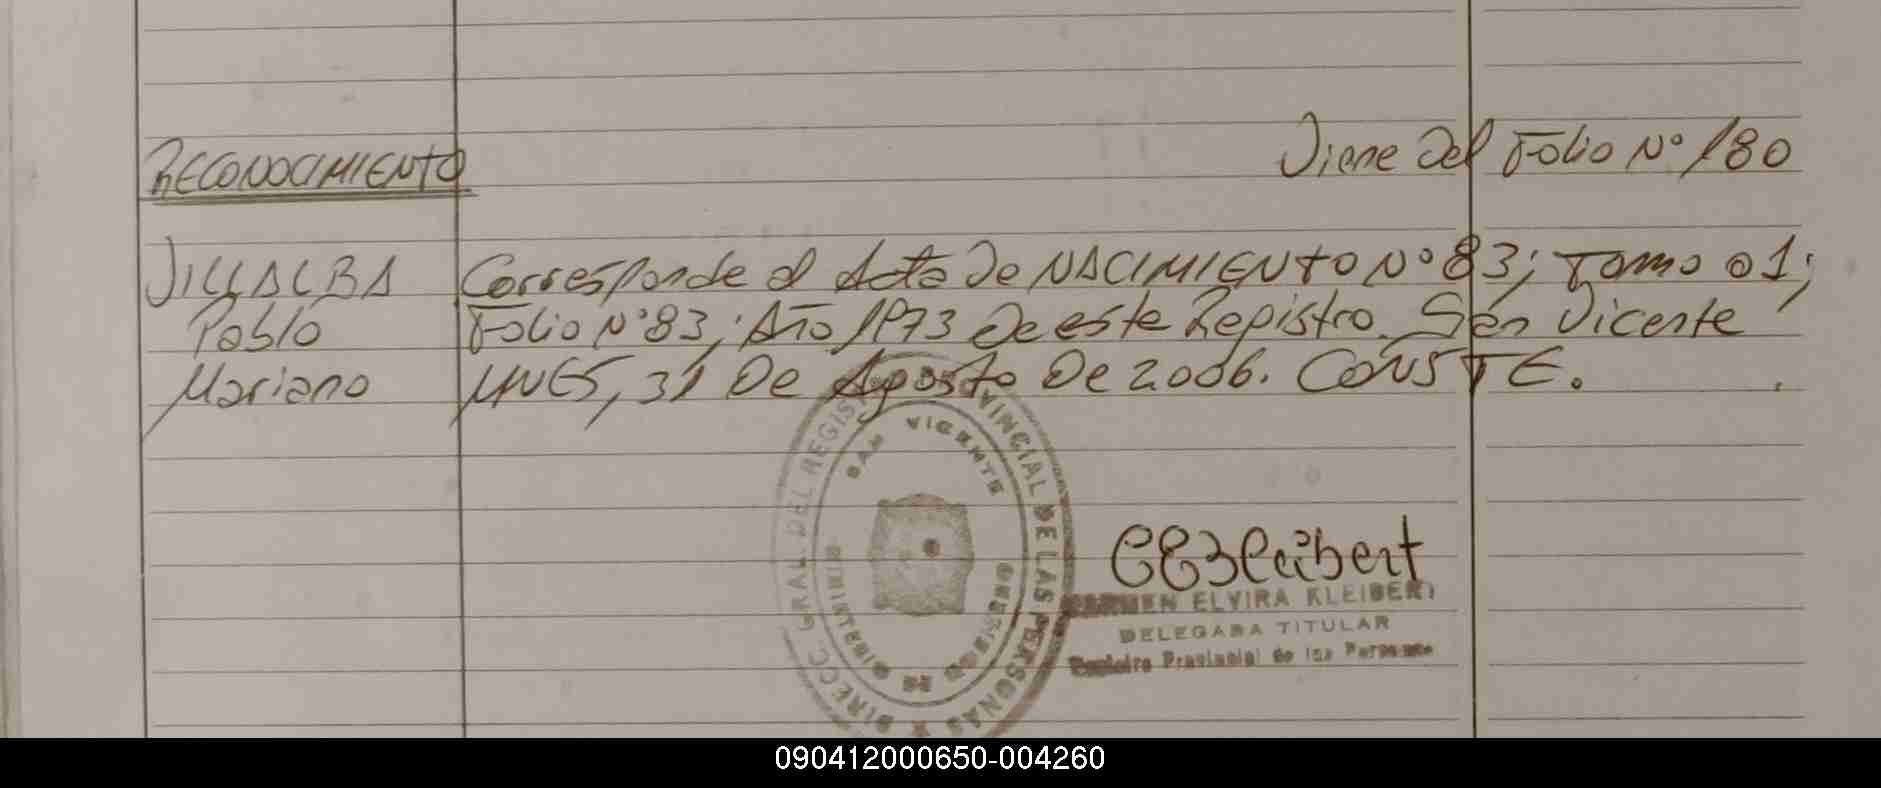 Viene del Folio N° 180
RECONOCIMIENTO
VILLALBA Corresponde al Acta de NACIMIENTO N° 83; Tomo 01;
Pablo Folio N° 83; Año 1973 de este Registro. San Vicente
Mariano MNES, 31 De Agosto De 2.006. CONSTE.
DIRECC. GRAL. DEL REGIST VINCIAL DE LAS PERSONAS
SAN VICENTE
CARMEN ELVIRA KLEIBERT
DELEGADA TITULAR
Registro Provincial de las Personas
090412000650-004260